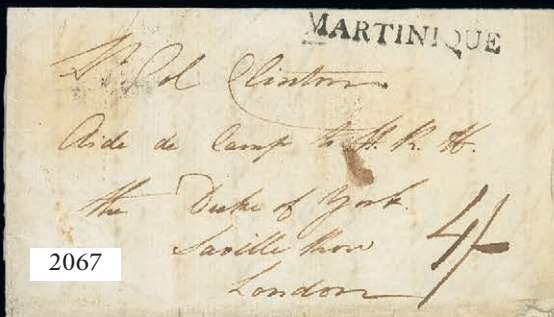 MARTINIQUE
Lt Col Clinton
Aide de Camp to H. R. H.
the Duke of York.
Saville Row
London
4/-
2067